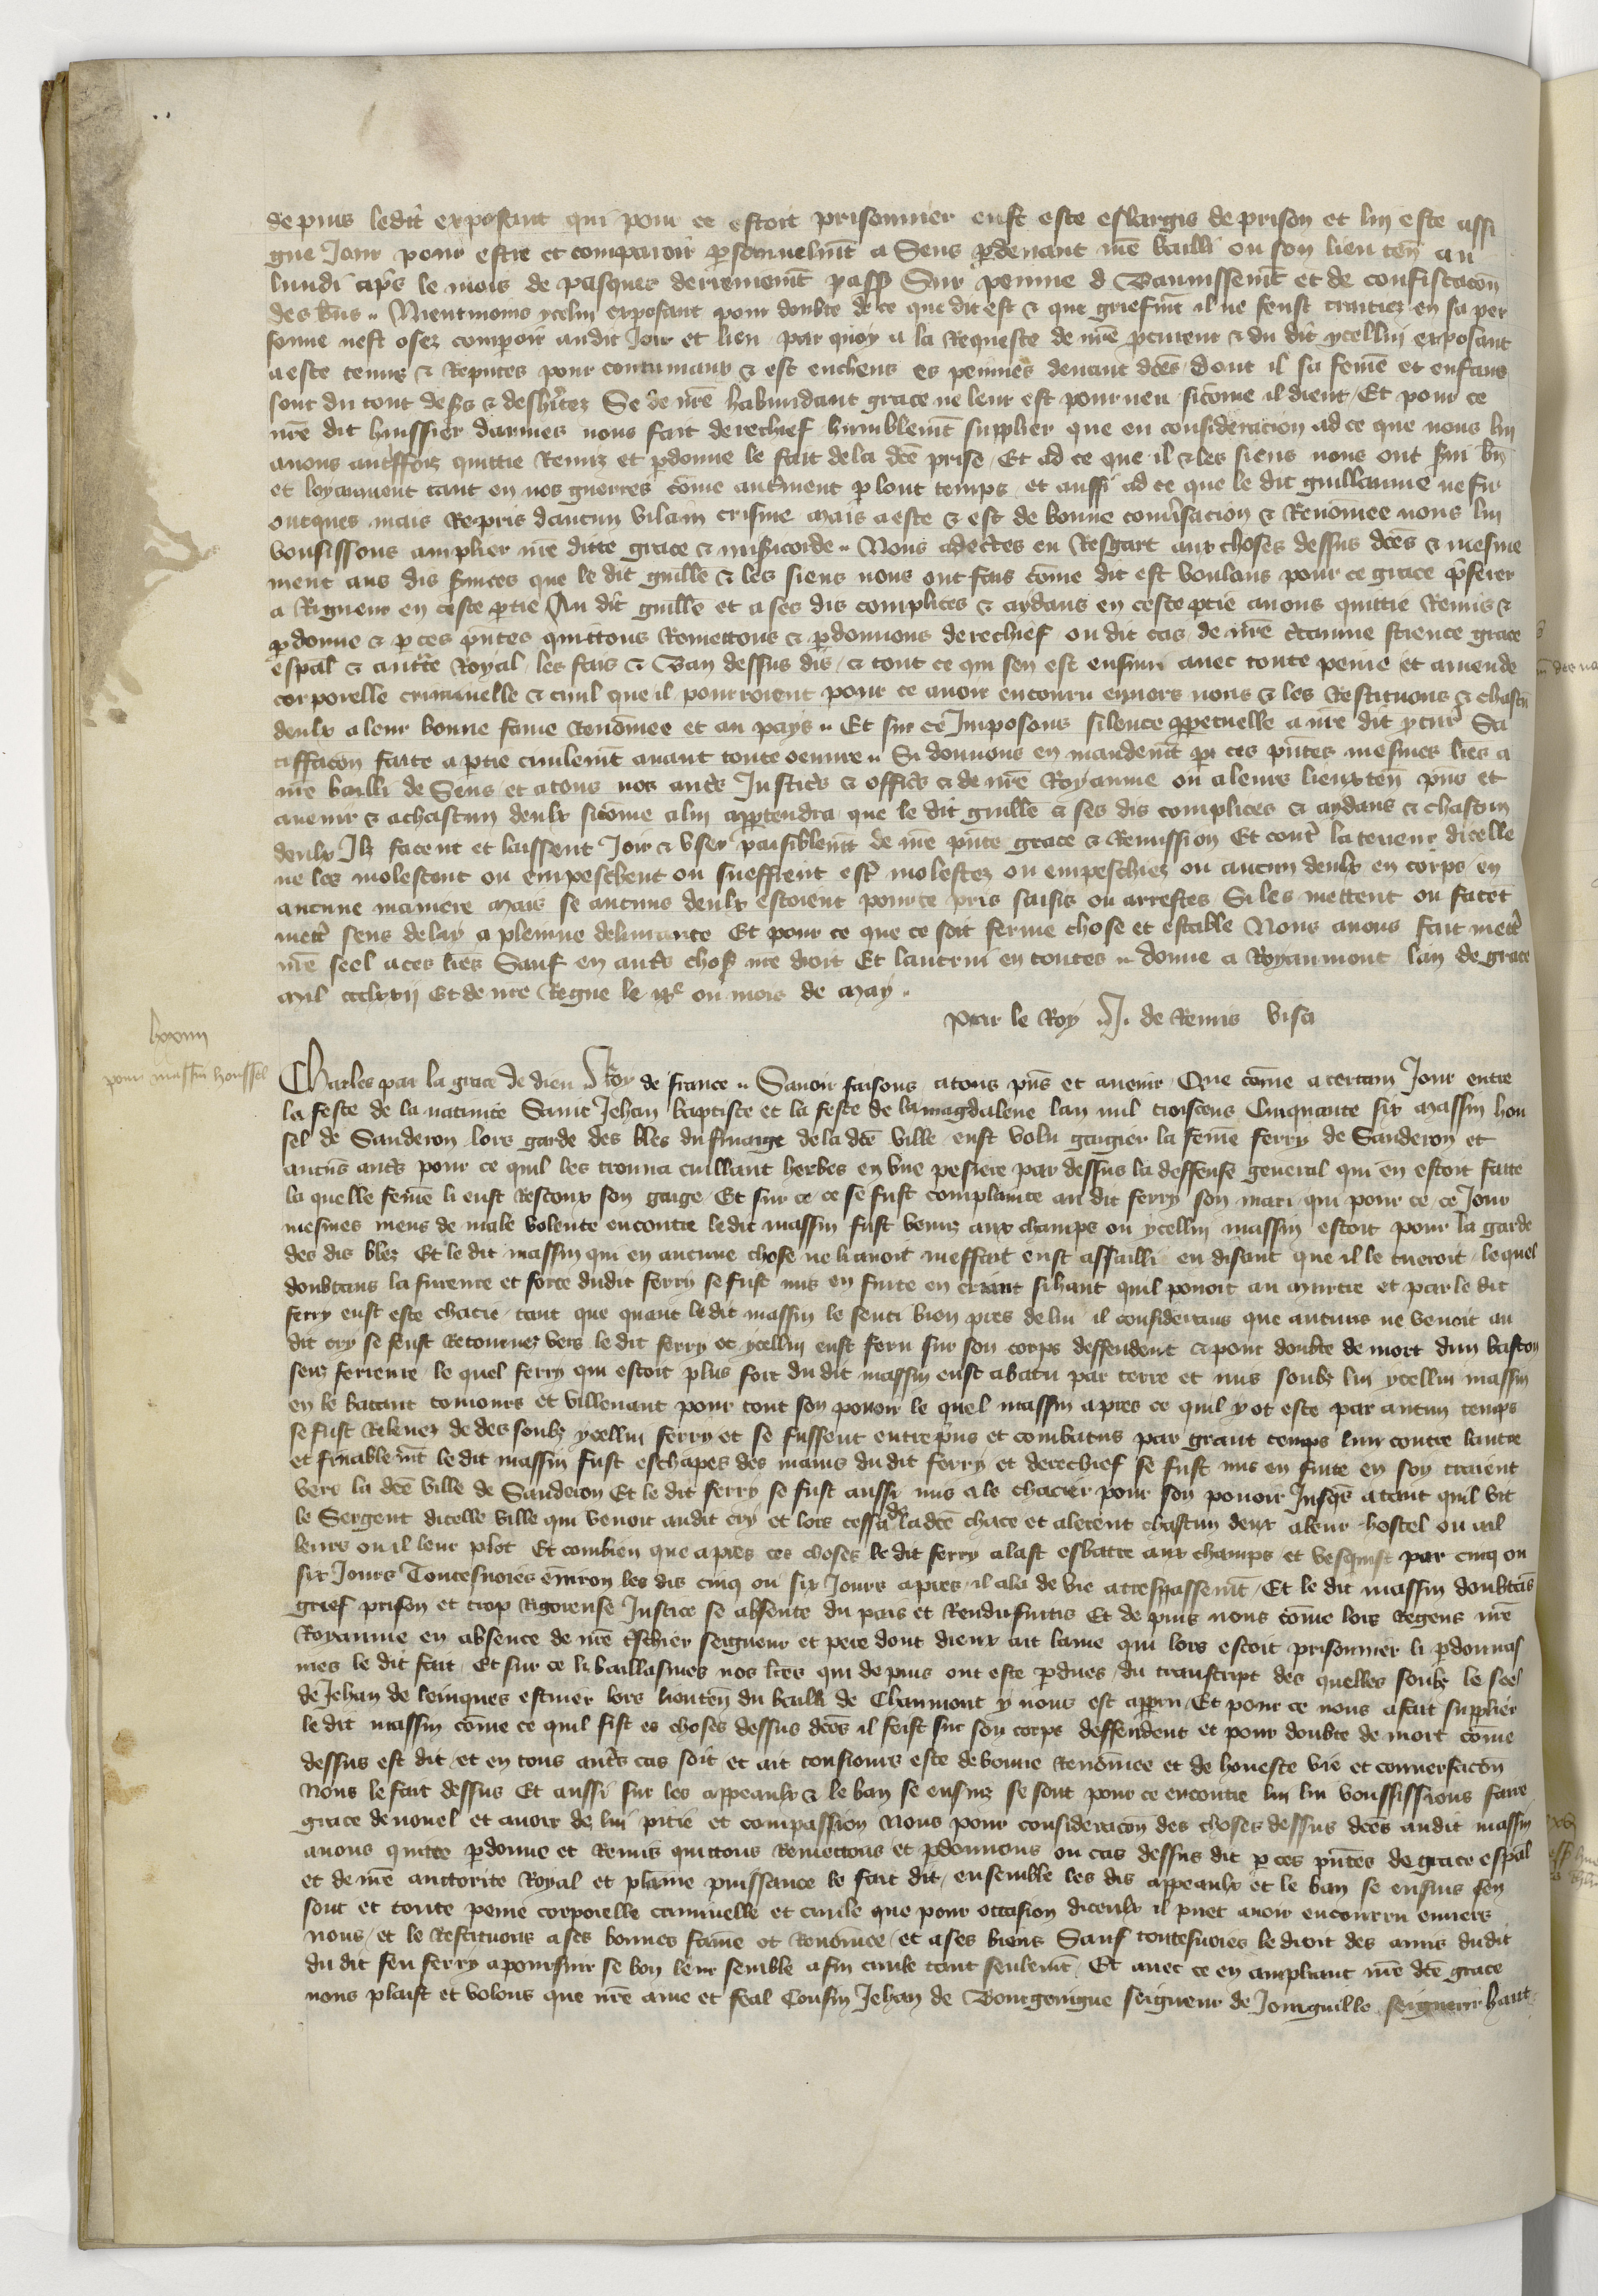 depuis ledit exposant qui pour ce estoit prisonnier eust este eslargis de prison et lui este assi
gne Jour pour estre et comparoir ꝑsonnelmt a Sens ꝑdevant nre bailli ou son lieuten̄ au
lundi apͬs le mois de pasques derrenieremt passe Sur peinne de Bannissemt et de confiscacōn
des bn̄s .. Nientmoins ycelui exposant pour doubte de ce que dit est & que griefmt il ne feust traitiez en sa per
sonne nest osez compoir audit Jour et lieu par quoy a la Requeste de nre ꝓcureur & du dit ycellui exposant
a este tenuz & Reputes pour contumaux & est encheus es peinnes devant dces dont il sa feme et enfans
sont du tout dess & desheritez Se de nre habundant grace ne leur est pourveu sicome il dient Et pour ce
nre dit huissier darmes nous fait derechief humblemt supplier que en consideracion ad ce que nous lui
avons autreffoiz quittie Remiz et ꝑdonne le fait dela dce prise Et ad ce que il & les siens nous ont servi bn̄
et loyaument tant en nos guerres come autrement ꝑ lont temps et aussi ad ce que le dit guillaume ne fu
onques mais Repris daucun vilain crisme mais a este & est de bonne conversacion & Renomee nous lui
vousissons amplier nre ditte grace & misericorde .. Nous adectes eu Resgart aux choses dessus dces & mesme
ment aus dis services que le dit guille & les siens nous ont fais come dit est voulans pour ce grace preferer
a Rigueur en ceste ꝑtie Au dit guille et a ses dis complices & aydans en ceste ptie avons quittie Remis &
ꝑdonne & ꝑ ces pn̄tes quittons Remettons & ꝑdonnons derechief ou dit cas de nre ctainne science grace
espal & auctte Royal les fais & Ban dessus dis & tout ce qui sen est ensuivi avec toute peine et amende
corporelle criminelle & civil que il pourroient pour ce avoir encouru envers nous & les Restituons & chascun
deulx a leur bonne fame Renomee et au pays .. Et sur ce Imposons silence ꝑpetuelle a nre dit ꝓcur Sa
tiffacōn faite a ptie civilemt avant toute oeuvre .. Si donnons en mandemt par ces pn̄tes mesmes lres a
nre bailli de Sens et atous nos autres Justices & offices & de nre Royaume ou a leurs lieuxten̄ pn̄s et
avenir & achascun deulx sicome a lui appartendra que le dit guille & ses dis complices & aydans & chascun
deulx Ilz facent et laissent Joir & user paisiblemt de nre pn̄te grace & Remission Et contre la teneur dicelle
ne les molestent ou empeschent ou sueffrent estre molestez ou empeschiez ou aucun deulx en corps en
aucune maniere mais se aucuns deulx estoient pource pris saisis ou arrestes Si les mettent ou facet
mettre sens delay a plenne delivrance Et pour ce que ce soit ferme chose et estable Nous avons fait mettre
nre seel aces lres Sauf en autres choses nre droit Et lautrui en toutes .. donne a Royaumont lan de grace
mil ccclxxij Et de nre Regne le ixe ou mois de may ..
Par le Roy .. J. de Remis visa
lxxviii
pour massin houssel
Charles par la grace de dieu Roy de france .. Savoir faisons atous pn̄s et avenir Que come a certain Jour entre
la feste de la nativite Saint Jehan baptiste et la feste de la magdalene lan mil troiscens Cinquante six massin hou
sel de Sanderon lors garde des bles du finaige dela dce ville eust volu gaigier la feme ferry de Sanderon et
aucuns autres pour ce quil les trouva cuillant herbes en une pesiere par dessus la deffense general qui en estoit faite
la quelle feme li eust Rescoux son gaige Et sur ce ce se fust complainte au dit ferry son mari qui pour ce ce Jour
mesmes meus de male volente encontre ledit massin fust venuz aux champs ou ycellui massin estoit pour la garde
des dis blez Et le dit massin qui en aucune chose ne li avoit meffait eust assailli en disant que il le tueroit lequel
doubtans la fureure et force dudit ferry se fust mis en fuite en criant sihaut quil povoit au murtre et par le dit
ferry eust este chacie tant que quant le dit massin le senti bien pres de lui il considerans que aucuns ne venoit au
dit cry se feust Retournez vers le dit ferry et ycellui eust feru sur son corps deffendent & pour doubte de mort dun baston
senz ferreure le quel ferry qui estoit plus fort du dit massin eust abatu par terre et mis soubz lui ycellui massin
en le batant tousiours et villenant pour tout son povoir le quel massin apres ce quil y ot este par aucun temps
se fust Relevez de des soubz ycellui ferry et se fussent entrepris et combatus par grant temps lun contre lautre
et finablemt le dit massin fust eschapes des mains du dit ferry et derechief se fust mis en fuite en soy traient
vers la dce ville de Sanderon Et le dit ferry se fust aussi mis a le chacier pour son povoir Jusqes atant quil vit
le Sergent dicelle ville qui venoit audit cry et lors cessa de ladce chace et alerent chascun deux a leur hostel ou ail
leurs ou il leur plot Et combien que apres ces choses le dit ferry alast esbatre aux champs et vesquist par cinq ou
six Jours Toutesvoies environ les dis cinq ou six Jours apres il ala de vie a trespassemt Et le dit massin doubtās
grief prison et trop Rigoreuse Justice se absente du pais et Rendu fuitis Et depuis nous come lors Regens nre
Royaume en absence de nre treschier seigneur et pere dont dieux ait lame qui lors estoit prisonnier li ꝑdonnas
mes le dit fait Et sur ce li baillasmes nos lres qui depuis ont este ꝑdues du transcript des quelles soubz le seel
de Jehan de leinques escuier lors lieuten̄ du bailli de Chaumont y nous est apparu Et pour ce nous a fait supplier
le dit massin come ce quil fist es choses dessus dces il feist sur son corps deffendent et pour doubte de mort come
dessus est dit et en tous autres cas soit et ait tousiours este de bonne Renomee et de honeste vie et conversacōn
Nous le fait dessus Et aussi sur les appeaulx & le ban se ensuiz se sont pour ce encontre lui lui voussissions faire
grace de novel et avoir de lui pitie et compassion Nous pour consideracōn des choses dessus dces audit massin
avons quitte ꝑdonne et Remis quittons Remettons et ꝑdonnons ou cas dessus dit ꝑ ces pn̄tes de grace espal
et de nre auctorite Royal et plaine puissance le fait dit ensemble les dis appeaulx et le ban se ensuis sen
sont et toute peine corporelle criminelle et civile que pour occasion diceulx il puet avoir encourru envers
nous et le Restituons a ses bonnes fame et Renomee et a ses biens Sauf toutesvoies le droit des amis dudit
du dit feu ferry a poursuir se bon leur semble a fin civile tant seulemt Et avec ce en ampliant nre dce grace
nous plaist et volons que nre ame et feal Cousin Jehan de Bourgoingne seigneur de Jonguille seigneur haut